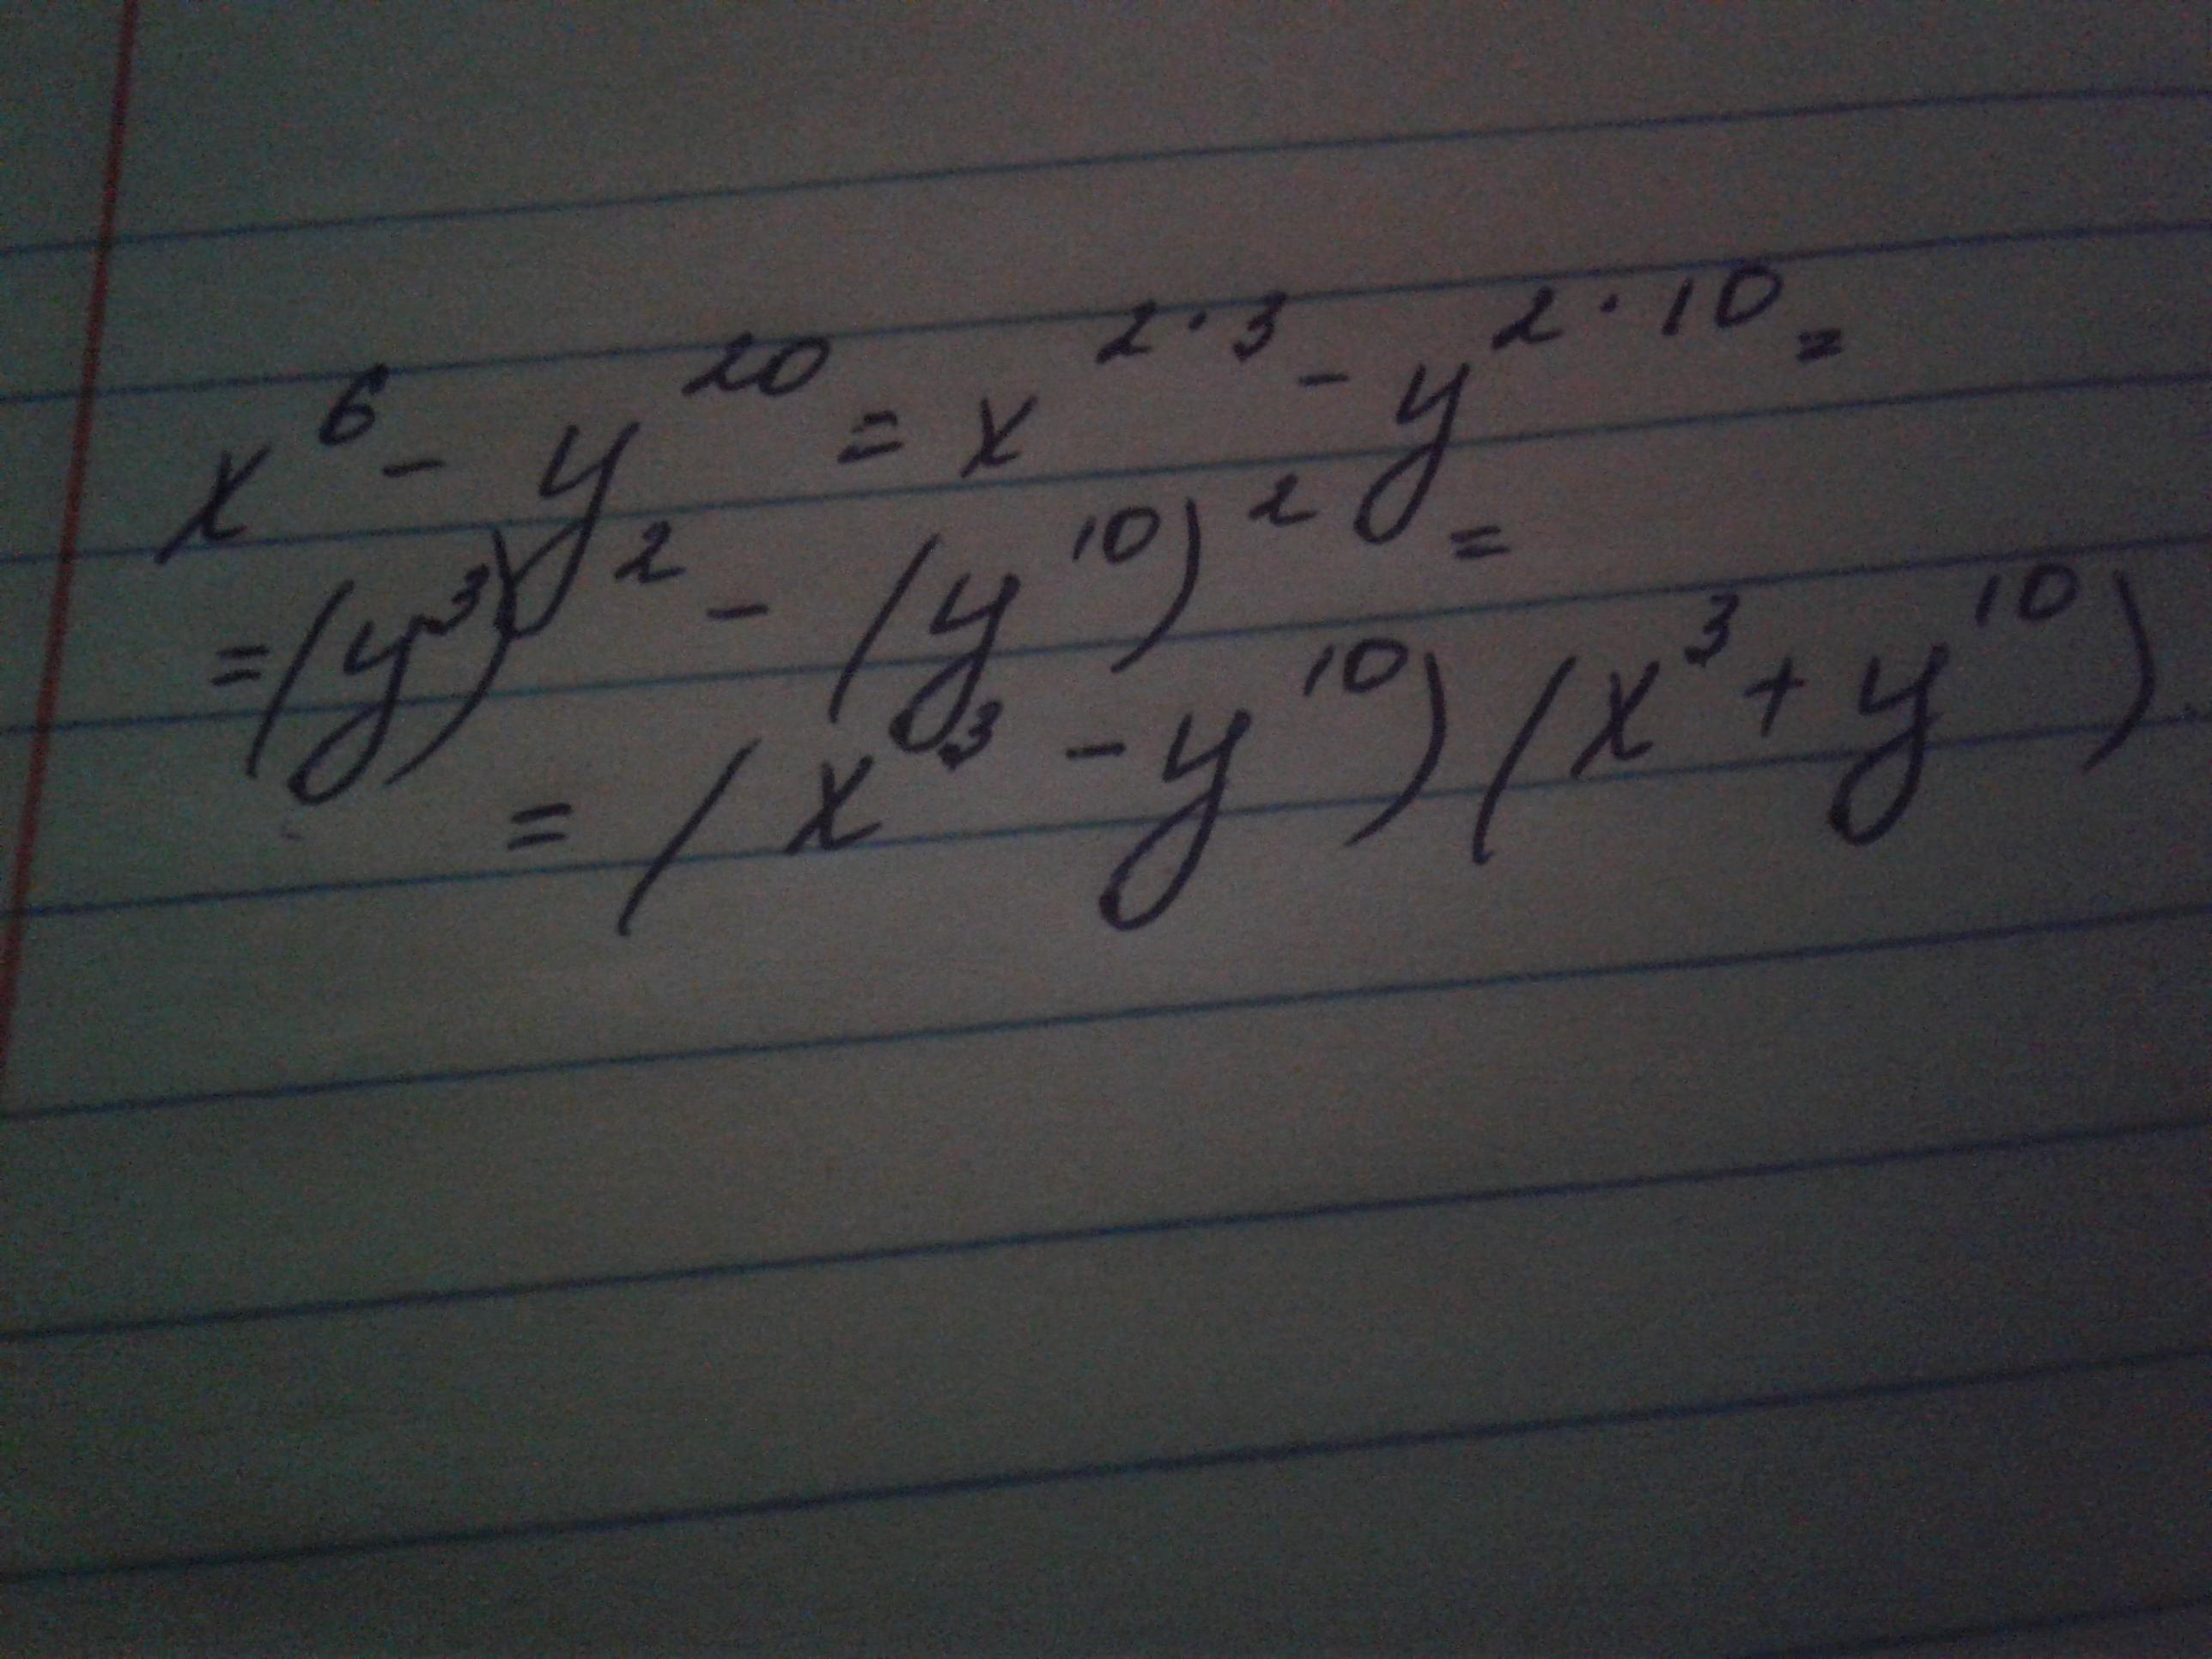 x⁶ - y²⁰ = x²·³ - y²·¹⁰ =
= (y³)² - (y¹⁰)² =
= (x³ - y¹⁰)(x³ + y¹⁰)